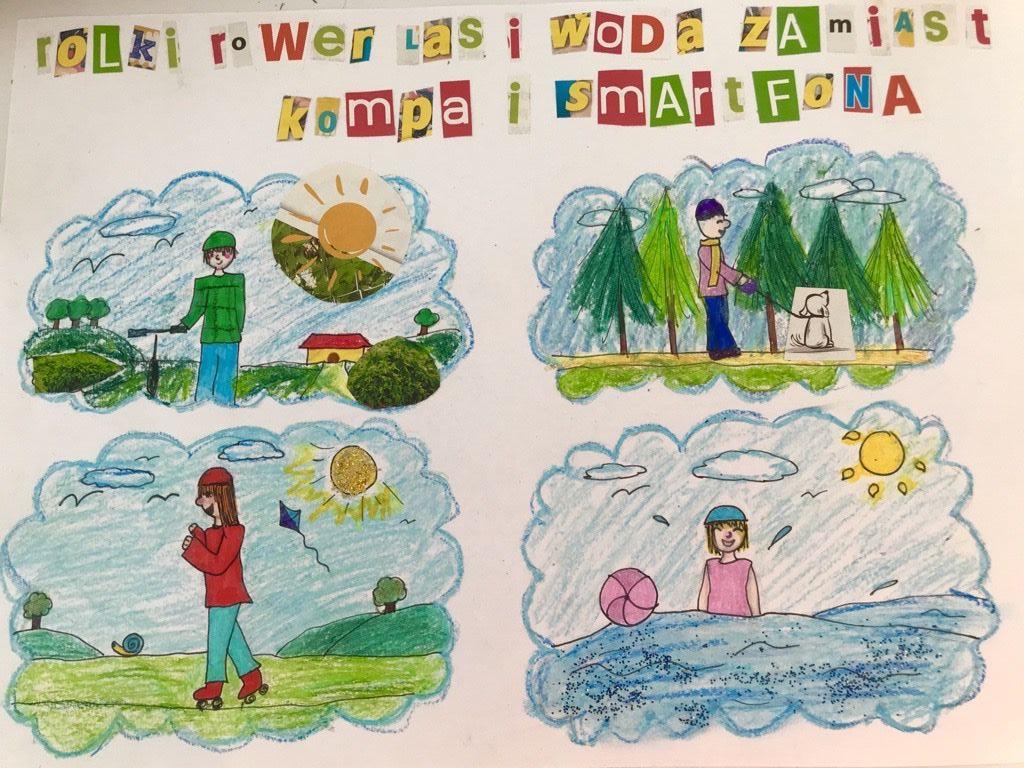 rOLKi roWer Las i woDa zAmiASt
kompa i SmArtFoNA